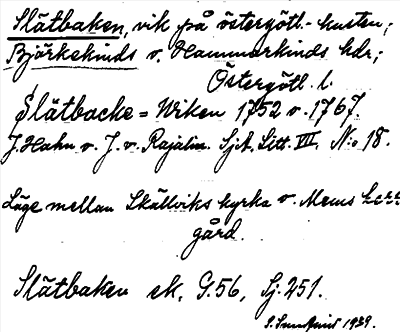 Slätbaken, vik på östergötl.- kusten;
Björkekinds o. Hammarkinds hdr;
Östergötl. l.
Slätbacke = Wiken 1752 o. 1767.
J. Hahn o. J. v. Rajalin Sjk. Litt. VII. N:o 18.
Läge mellan Skällviks kyrka o. Mems
gård.
Slätbaken ek, G. 56, Sj. 251.
1939.